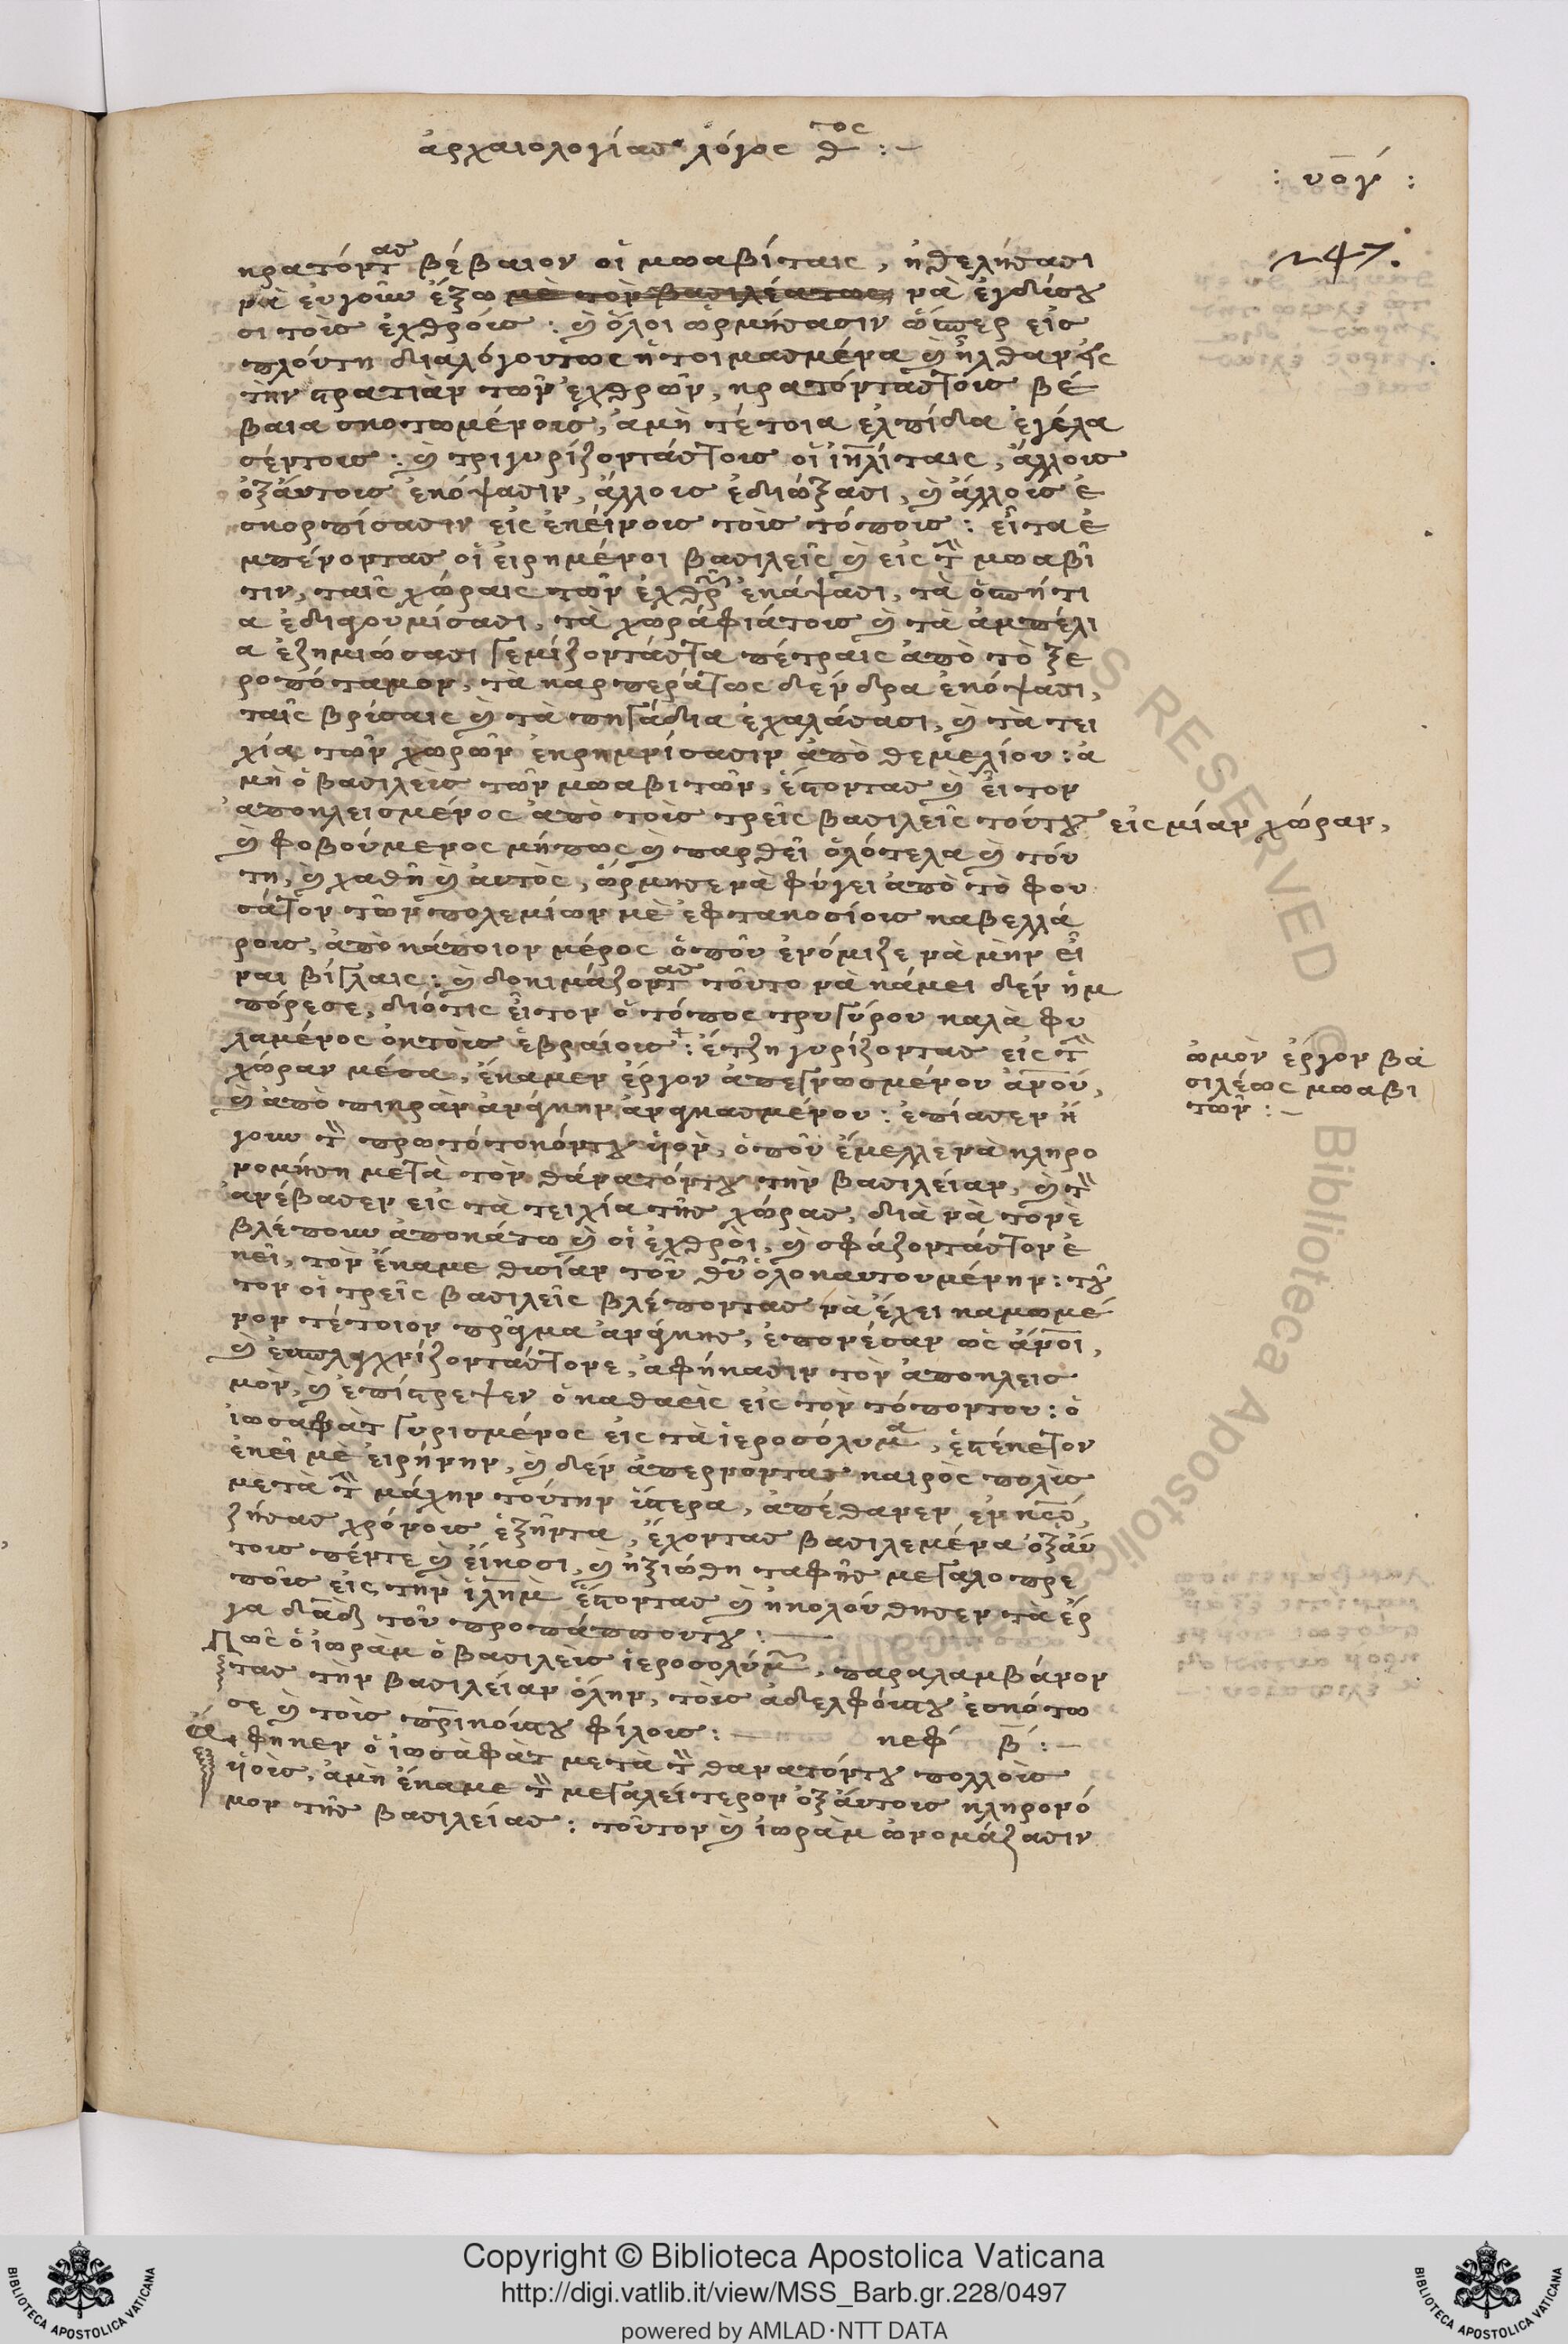 ἀρχαιολογίασ λόγος θ τος : –
: υογ :
247.
κρατόντ ασ βέβαιον οἱ μωαβίταις, ἠθελήσασι
νὰ εὐγοῦν ἔξω νὰ ἐγδύσου
σι τοὺσ ἐχθροὺσ : ὅλοι ὡρμήσασιν ὥσπερ εἰσ
πλούτη διαλόγουτως ἡτοιμασμένα ἦλθαν εἰς
τὴν στρατιὰν τῶν ἐχθρῶν, κρατόντασ τοὺσ βέ
βαια σκοτωμένουσ, ἀμὴ τέτοια ἐλπίδα ἐγέλα
σέντουσ : τριγυρίζοντάσ τουσ οἱ ἰηλίταις, ἄλλουσ
ὀξάυτουσ ἐκόψασιν, ἄλλουσ ἐδιώξασι, ἄλλουσ ἐ
σκορπίσασιν εἰς ἐκείνουσ τοὺσ τόπουσ : εἶτα ἐ
μπένοντασ οἱ εἰρημένοι βασιλεῖς εἰς τὴν μωαβῖ
τιν, ταῖς χώραις τῶν ἐχθρῶν ἐκάψασι, τὰ ὁσπήτι
α ἐδιαγουμίσασι, τὰ χωράφιάτουσ τὰ ἀμπέλι
α ἐζημιώσασι γεμίζοντάστα πέτραις ἀπὸ τὸ ξε
ροπόταμον, τὰ καρπεράτως δένδρα ἐκόψασι,
ταῖς βρύσαις τὰ πηγάδια ἐχαλάσασι, τὰ τει
χία τῶν χωρῶν ἐκρημνίσασιν ἀπὸ θεμελίου : ἀ
μὴ ὁ βασιλεὺσ τῶν μωαβιτῶν, ἔστοντασ εἶτον
ἀποκλεισμένος ἀπὸ τοὺσ τρεῖς βασιλεῖς τούτου εἰς μίαν χώραν,
φοβούμενος μήπως παρθεῖ ὁλότελα τού
τη, χαθῆ αὐτὸς, ὥρμησε νὰ φύγει ἀπὸ τὸ φου
σάτον τῶν πολεμίων μὲ ἑφτακοσίουσ καβελλά
ρουσ, ἀπὸ κάποιον μέρος ὁποῦ ἐνόμιζε νὰ μὴν εἶ
ναι βίγλαις : δοκιμάζοντ ασ τοῦτο νὰ κάμει δὲν ἠμ
πόρεσε, διότις εἶτον ὁ τόπος τρυγύρου καλὰ φυ
λαμένος ὀκτοὺσ ἑβραίουσ : ἔτζη γυρίζοντασ εἰς τὴν
χώραν μέσα, ἔκαμεν ἔργον ἀπεγνωσμένου ἀνου,
ἀπὸ πικρὰν ἀνάγκην ἀναγκασμένου : ἐπίασεν ἤ
γουν τὸν πρωτότοκόντου ὑιὸν, ὁποῦ ἔμελλε νὰ κληρο
νομήση μετὰ τὸν θάνατόντου τὴν βασιλείαν, τὸν
ἀνέβασεν εἰς τὰ τειχία τῆσ χώρασ, διὰ νὰ τονὲ
βλέπουν ἀποκάτω οἱ ἐχθροὶ, σφάζοντάστον ἐ
κεῖ, τὸν ἔκαμε θυσίαν τοῦ θῦ ὁλοκαυτουμένην : τοῦ
τον οἱ τρεῖς βασιλεῖς βλέποντασ νὰ ἔχει καμωμέ
νον τέτοιον πρᾶγμα ἀνάγκησ, ἐπονέσαν ὡς ἄνοι,
ἐυσπλαγχνίζοντάστονε, ἀφήκασιν τὸν ἀποκλεισ
μὸν, ἐπίστρεψεν ὁ καθαεὶς εἰς τὸν τόποντου : ὁ
ἰωσαφὰτ γυρισμένος εἰς τὰ ἱεροσόλυμ α, ἐστέκετον
ἐκεῖ μὲ εἰρήνην, δὲν ἀπερνοντασ καιρὸς πολὺσ
μετὰ τὴν μάχην τούτην ὕστερα, ἀπέθανεν
ζήσασ χρόνουσ ἑξῆντα, ἔχοντασ βασιλεμένα ὀξάυ
τουσ πέντε εἴκοσι, ἠξιώθη ταφῆσ μεγαλοπρε
ποῦσ εἰς τὴν ἱλημ ἔστοντασ ἠκολούθησεν τὰ ἔρ
γα δαδ τοῦ προπάππουτου : –
Πῶς ὁ ἰωρὰμ ὁ βασιλεὺσ ἱεροσολύμων, παραλαμβάνον
τασ τὴν βασιλείαν ὅλην, τοὺσ ἀδελφούστου ἐσκότω
σε τοὺσ πρικούστου φίλουσ : – κεφ β : –
Ἄφηκεν ὁ ἰωσάφὰτ μετὰ τὸν θανατόντου πολλοὺσ
ὑιοὺσ, ἀμὴ ἔκαμε τὸν μεγαλείτερον ὀξάυτουσ κληρονό
μον τῆσ βασιλείασ : τοῦτον ἰωρὰμ ὠνομάζασιν
ὠμὸν ἔργον βα
σιλέως μωαβι
τῶν : –
ALL RIGHTS RESERVED © Biblioteca Apostolica Vaticana
Copyright © Biblioteca Apostolica Vaticana
http://digi.vatlib.it/view/MSS_Barb.gr.228/0497
powered by AMLAD·NTT DATA
BIBLIOTECA APOSTOLICA VATICANA
BIBLIOTECA APOSTOLICA VATICANA